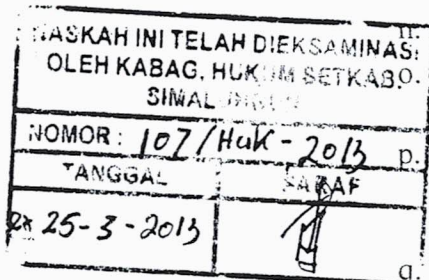 n.
NASKAH INI TELAH DIEKSAMINASI
OLEH KABAG. HUKUM SETKAB
o.
NOMOR : 107/HUK-2013
p.
TANGGAL
PARAF
25-3-2013
q.